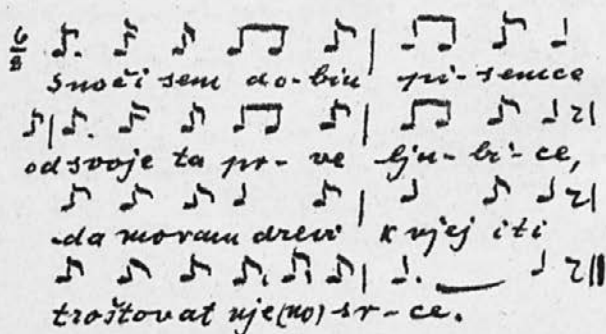 6/8
snoči sem do-biu pi-semce
od svoje ta pr-ve lju-bi-ce,
da moram drevi k njej iti
troštovat nje(no) sr-ce.